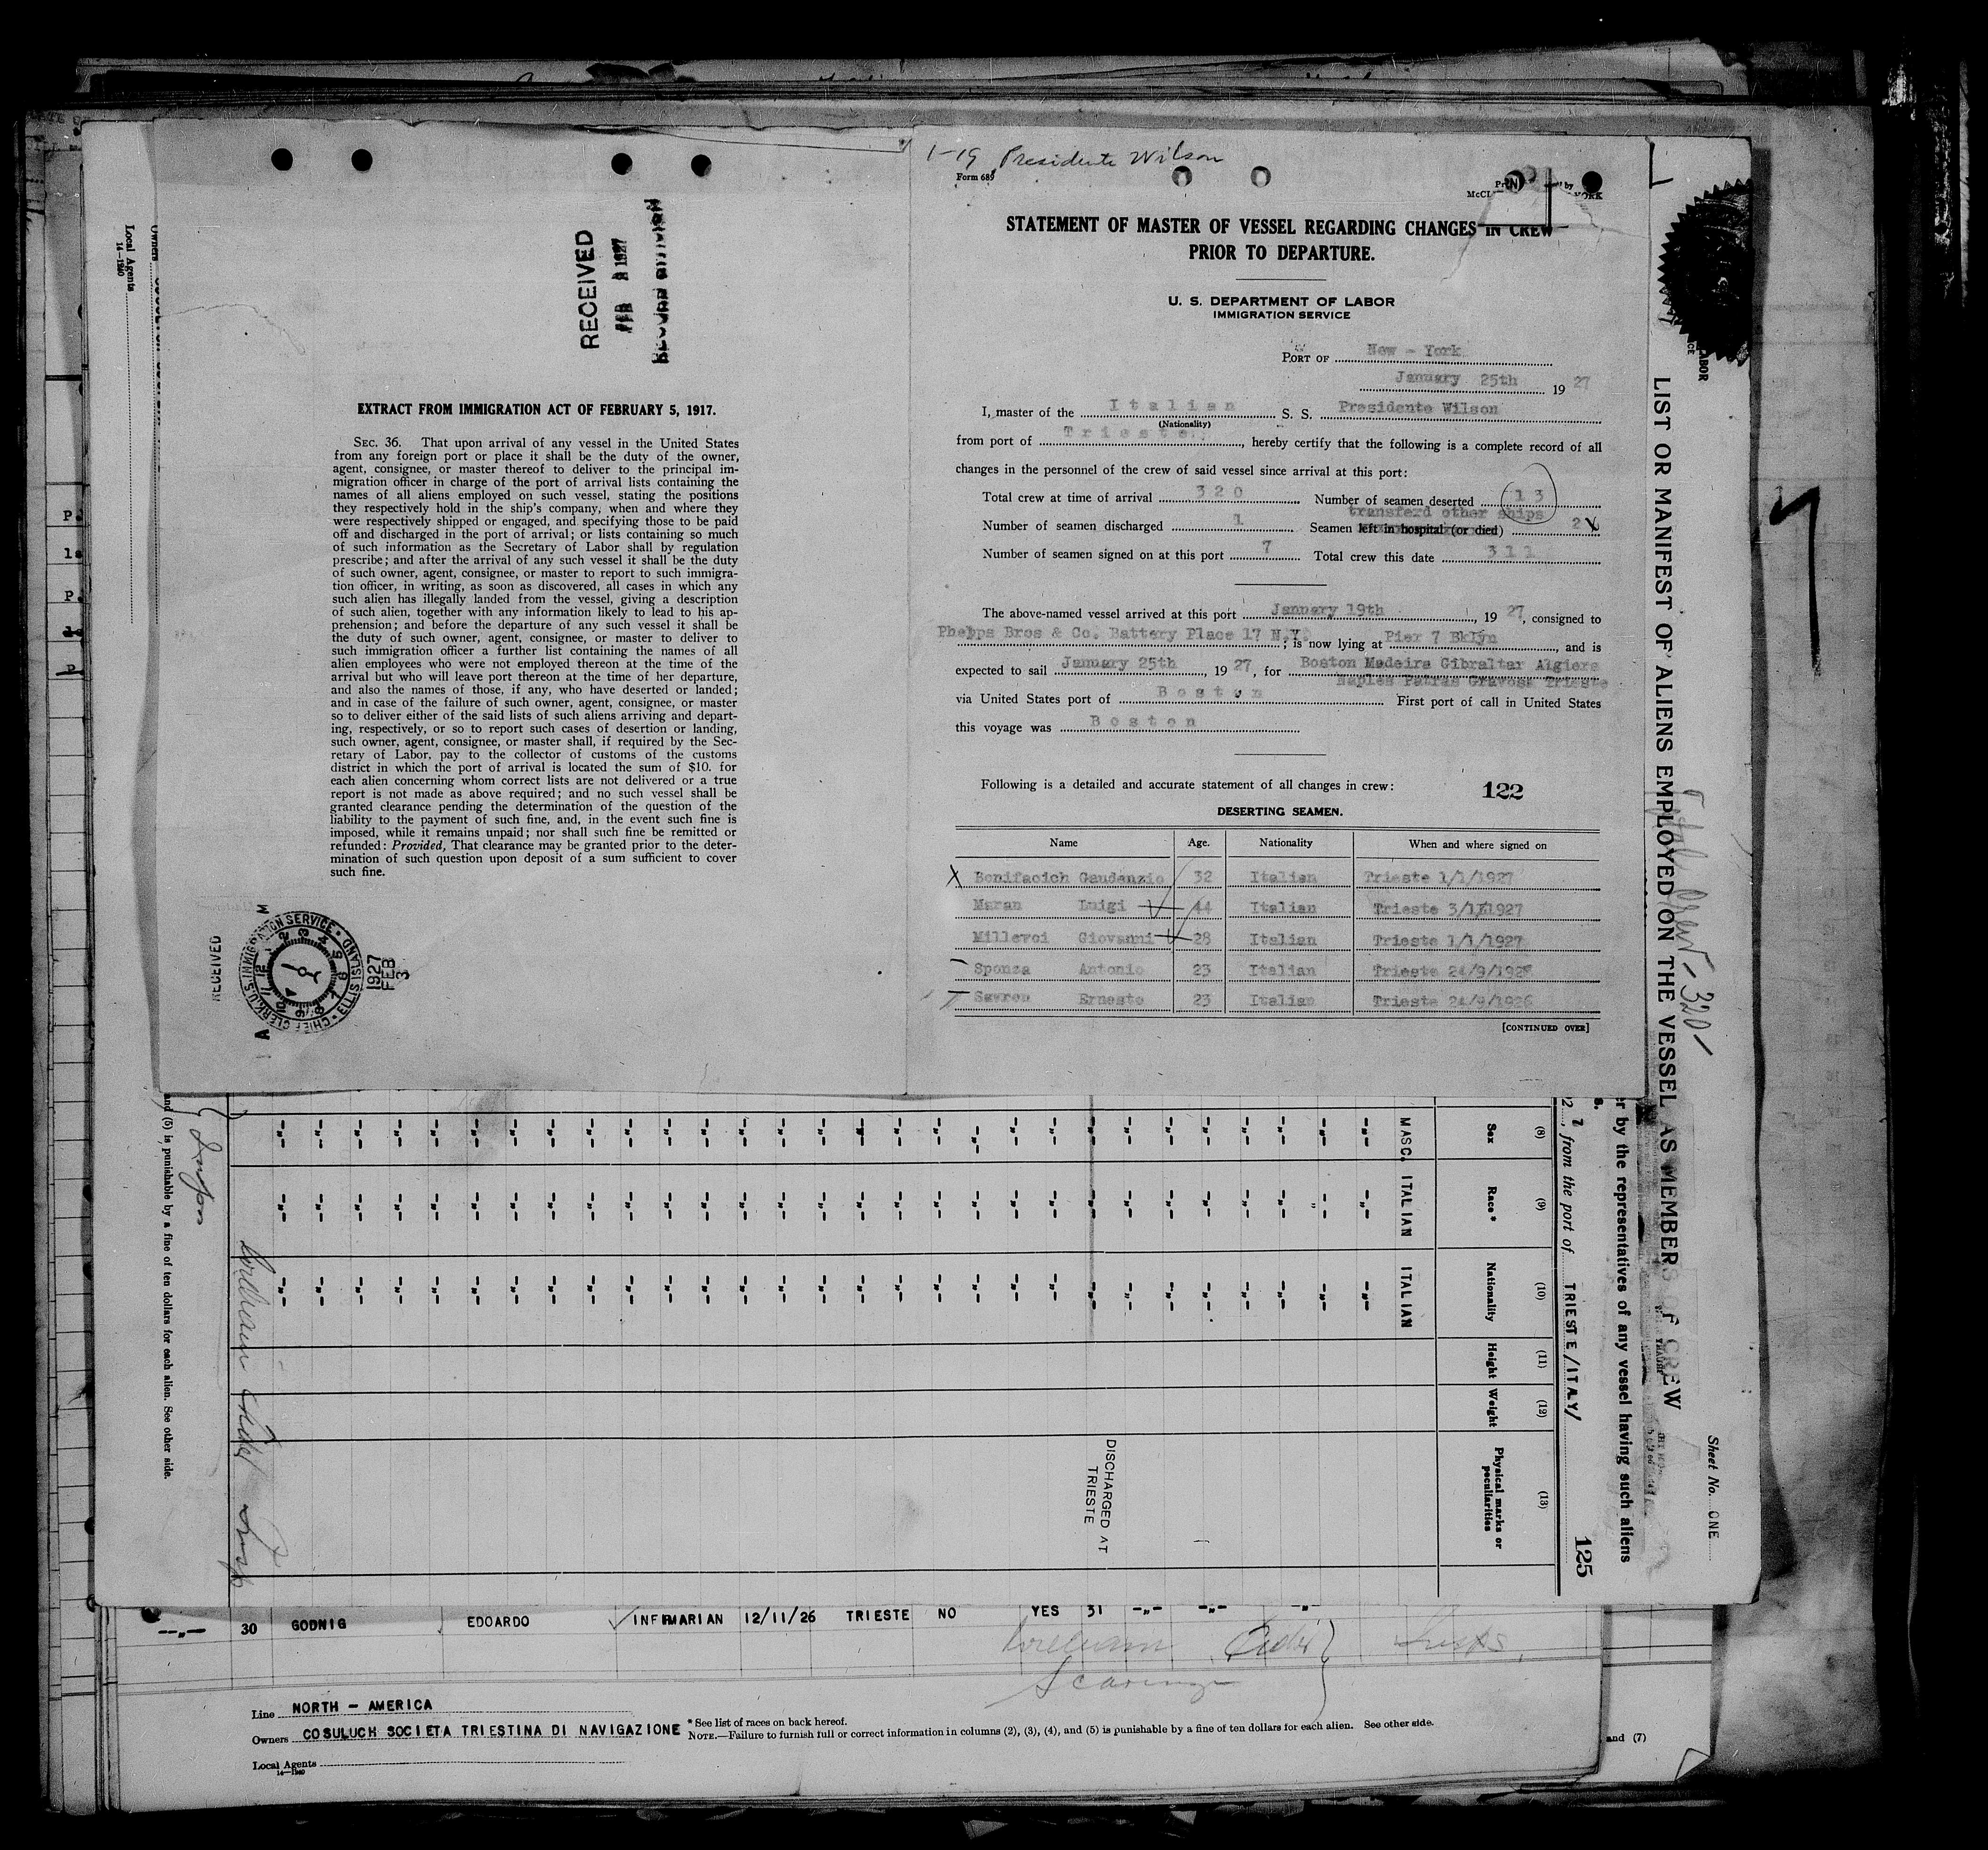 RECEIVED
FEB 1927
EXTRACT FROM IMMIGRATION ACT OF FEBRUARY 5, 1917.
SEC. 36. That upon arrival of any vessel in the United States
from any foreign port or place it shall be the duty of the owner,
agent, consignee, or master thereof to deliver to the principal im-
migration officer in charge of the port of arrival lists containing the
names of all aliens employed on such vessel, stating the positions
they respectively hold in the ship's company, when and where they
were respectively shipped or engaged, and specifying those to be paid
off and discharged in the port of arrival; or lists containing so much
of such information as the Secretary of Labor shall by regulation
prescribe; and after the arrival of any such vessel it shall be the duty
of such owner, agent, consignee, or master to report to such immigra-
tion officer, in writing, as soon as discovered, all cases in which any
such alien has illegally landed from the vessel, giving a description
of such alien, together with any information likely to lead to his ap-
prehension; and before the departure of any such vessel it shall be
the duty of such owner, agent, consignee, or master to deliver to
such immigration officer a further list containing the names of all
alien employees who were not employed thereon at the time of the
arrival but who will leave port thereon at the time of her departure,
and also the names of those, if any, who have deserted or landed;
and in case of the failure of such owner, agent, consignee, or master
so to deliver either of the said lists of such aliens arriving and depart-
ing, respectively, or so to report such cases of desertion or landing,
such owner, agent, consignee, or master shall, if required by the Sec-
retary of Labor, pay to the collector of customs of the customs
district in which the port of arrival is located the sum of $10. for
each alien concerning whom correct lists are not delivered or a true
report is not made as above required; and no such vessel shall be
granted clearance pending the determination of the question of the
liability to the payment of such fine, and, in the event such fine is
imposed, while it remains unpaid; nor shall such fine be remitted or
refunded: Provided, That clearance may be granted prior to the deter-
mination of such question upon deposit of a sum sufficient to cover
such fine.
RECEIVED
CHIEF CLERK U.S. IMMIGRATION SERVICE · ELLIS ISLAND
1927
FEB
3
A M
Owners
Local Agents
14—1240
1-19 Presidente Wilson
Form 689
STATEMENT OF MASTER OF VESSEL REGARDING CHANGES IN CREW
PRIOR TO DEPARTURE.
U. S. DEPARTMENT OF LABOR
IMMIGRATION SERVICE
PORT OF New - York
January 25th 19 27
I, master of the Italian S. S. Presidente Wilson
(Nationality)
from port of Trieste, hereby certify that the following is a complete record of all
changes in the personnel of the crew of said vessel since arrival at this port:
Total crew at time of arrival 320 Number of seamen deserted 13
transferd other ships
Number of seamen discharged 1 Seamen left in hospital (or died) 2
Number of seamen signed on at this port 7 Total crew this date 311
The above-named vessel arrived at this port January 19th, 19 27, consigned to
Phelps Bros & Co. Battery Place 17 N.Y.; is now lying at Pier 7 Bklyn, and is
expected to sail January 25th, 19 27, for Boston Madeira Gibraltar Algiers
Naples Patras Gravosa Trieste
via United States port of Boston First port of call in United States
this voyage was Boston
Following is a detailed and accurate statement of all changes in crew: 122
DESERTING SEAMEN.
Name Age. Nationality When and where signed on
X Bonifacich Gaudenzio 32 Italian Trieste 1/1/1927
Maran Luigi 44 Italian Trieste 3/1/1927
Millevoi Giovanni 28 Italian Trieste 1/1/1927
Sponza Antonio 23 Italian Trieste 24/9/1926
Savron Ernesto 23 Italian Trieste 24/9/1926
[CONTINUED OVER]
Sheet No. ONE
LIST OR MANIFEST OF ALIENS EMPLOYED ON THE VESSEL AS MEMBERS OF CREW
320
er by the representatives of any vessel having such aliens
, from the port of TRIESTE /ITALY/
125
(8) (9) (10) (11) (12) (13)
Sex Race* Nationality Height Weight Physical marks or peculiarities
MASC. ITALIAN ITALIAN
DISCHARGED AT
TRIESTE
and (5) is punishable by a fine of ten dollars for each alien. See other side.
30 GODNIG EDOARDO INFIRMARIAN 12/11/26 TRIESTE NO YES 31 -"- -"- -"-
Line NORTH - AMERICA
Owners COSULUCH SOCIETA TRIESTINA DI NAVIGAZIONE
* See list of races on back hereof.
NOTE.—Failure to furnish full or correct information in columns (2), (3), (4), and (5) is punishable by a fine of ten dollars for each alien. See other side.
Local Agents
14—1240
and (7)